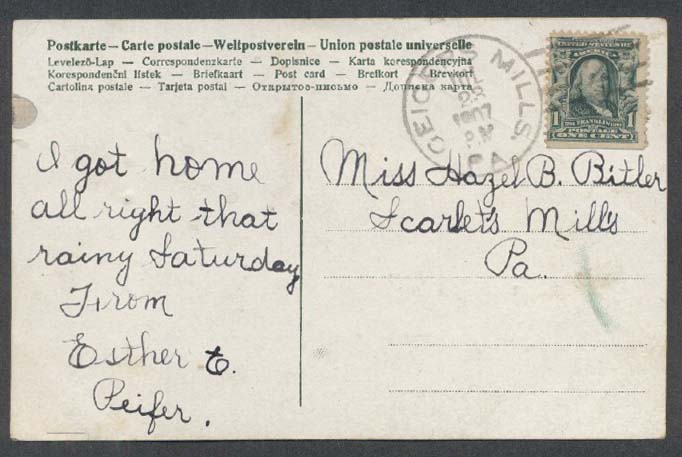 Postkarte — Carte postale — Weltpostverein — Union postale universelle
Levelező-Lap — Correspondenzkarte — Dopisnice — Karta korespondencyjna
Korespondenční lístek — Briefkaart — Post card — Brefkort — Brevkort
Cartolina postale — Tarjeta postal — Открытое-письмо — Дописна карта
GEIGERS MILLS,
1907
PA.
UNITED STATES OF
FRANKLIN
1 POSTAGE 1
ONE CENT
I got home
all right that
rainy Saturday
From
Esther E.
Peifer.
Miss Hazel B. Bitler
Scarlet's Mill's
Pa.